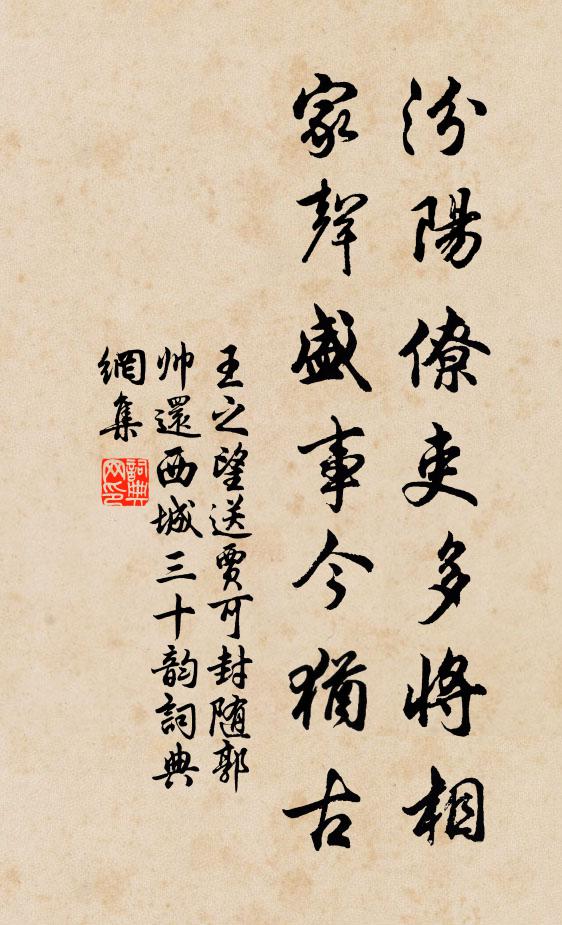 汾陽僚吏多將相
家聲盛事今猶古
王之望送賈可封随郭
帅還西城三十韵詞典
網集
詞典
网印